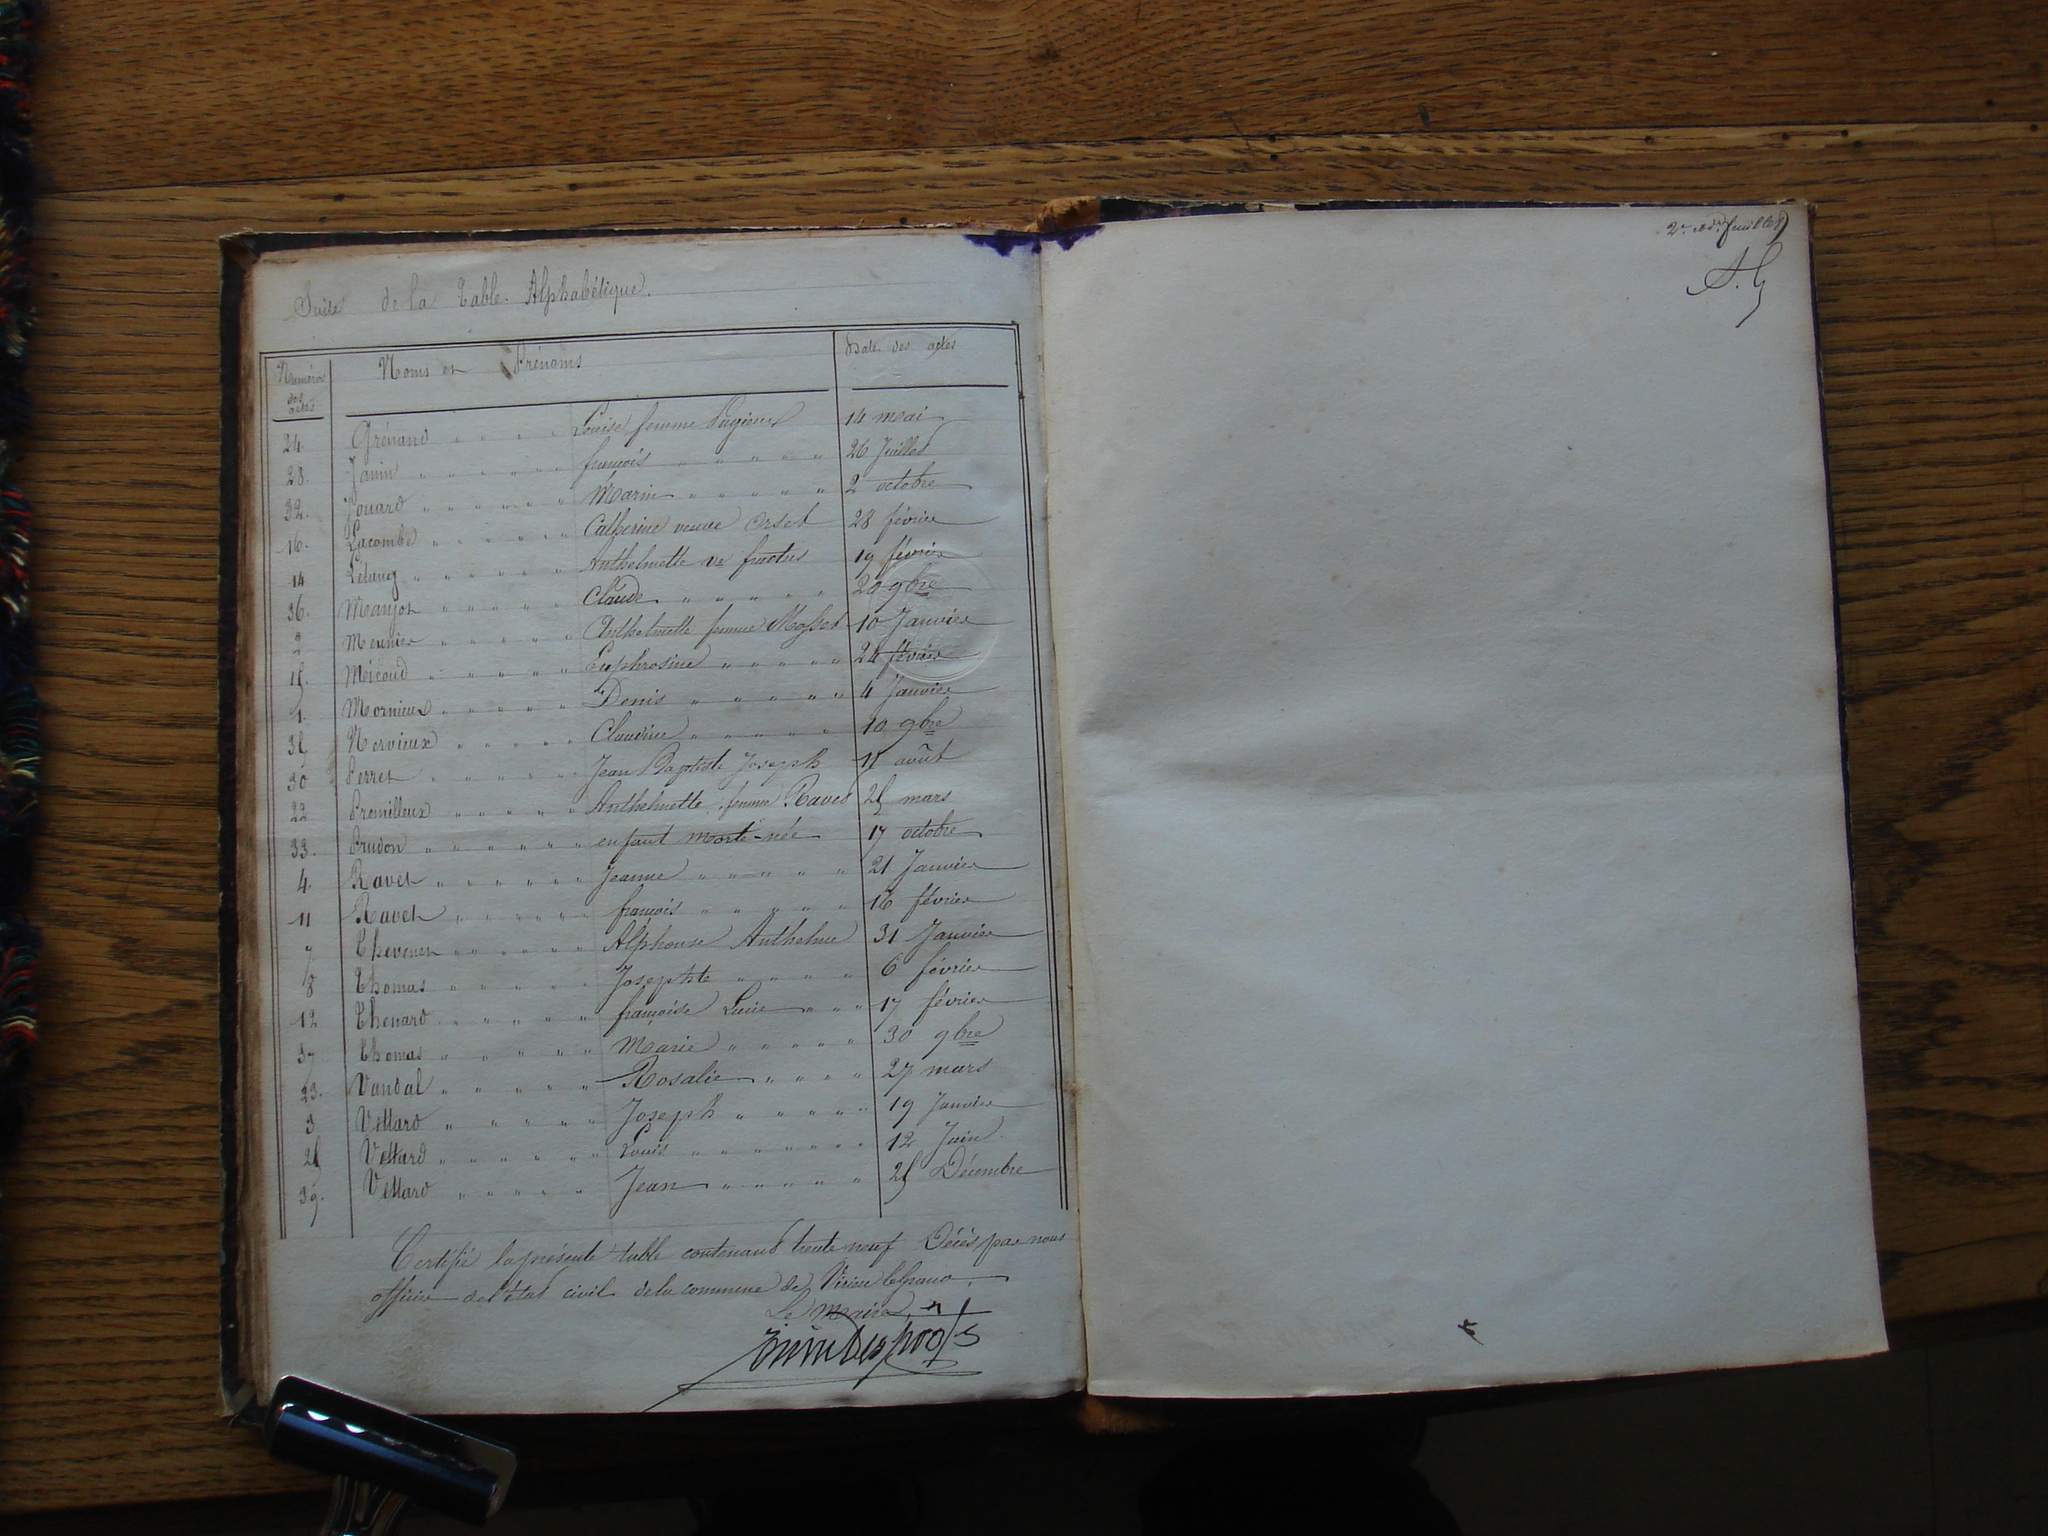 Suite de la Table Alphabétique.
Numéros des actes Noms et Prénoms Date des actes
24. Grénaud " " " " Louise femme 14 mai
28. Janin " " " " " françois " " " " " 26 Juillet
32. Jouard " " " " " Marin " " " " " 2 octobre
16. Lacombe " " " " " Catherine veuve Orset 28 février
14 " " " " " Anthelmette ve 19 février
36. Manjot " " " " " Claude " " " " " 29 9bre
2 Meunier " " " " " Anthelmette femme Mosset 10 Janvier
18. " " " " " Euphrosine " " " " " 24 février
1. Mornieux " " " " " Denis " " " " " 4 Janvier
35 Nervieux " " " " " Claudine " " " " " 10 9bre
30 Perret " " " " " Jean Baptiste Joseph 18 août
22 Premilleux " " " " " Anthelmette femme Ravet 25 mars
33. Prudon " " " " " enfant mort-née 17 octobre
4. Ravet " " " " " Jeanne " " " " " 21 Janvier
11 Ravet " " " " " françois " " " " " 16 février
7 Thevenet " " " " " Alphonse Anthelme 31 Janvier
8 Thomas " " " " " Josephte " " " " 6 février
12 Thenard " " " " " françoise Lucie " " " 17 février
37 Thomas " " " " " Marie " " " " " 30 9bre
23. Vandal " " " " " Rosalie " " " " 27 mars
3 Vettard " " " " " Joseph " " " " " 19 Janvier
25 Vettard " " " " " " Louis " " " " " " " 12 Juin
39. Vettard " " " " " Jean " " " " " 25 Décembre
Certifié la présente table contenant trente neuf Décès par nous
officier de l'état civil de la commune de Virieu le Grand.
Le Maire
2e et dr. feuillet